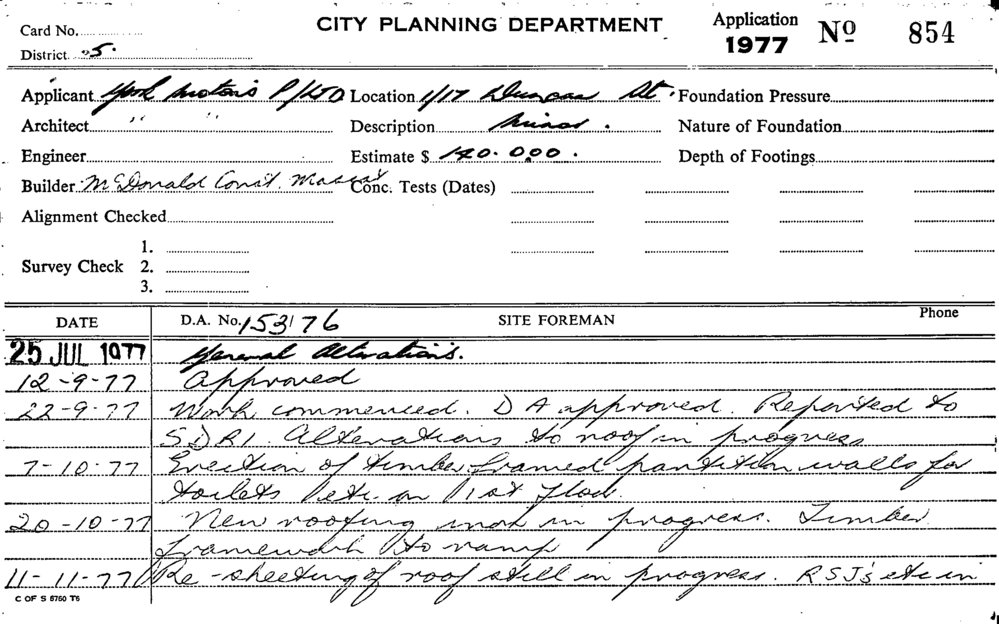 CITY PLANNING DEPARTMENT
Application
1977 Nº 854
Card No.
District 5.
Applicant York Motors P/LTD Location 1/17 Duncan St. Foundation Pressure
Architect " " Description Minor. Nature of Foundation
Engineer Estimate $ 140.000. Depth of Footings
Builder McDonald Const. Conc. Tests (Dates)
Alignment Checked
1.
Survey Check 2.
3.
DATE D.A. No. 153/76 SITE FOREMAN Phone
25 JUL 1977 General Alterations.
12-9-77 Approved
22-9-77 Work commenced. D A approved. Reported to
SDRI. Alterations to roof in progress
7-10-77 Erection of timber framed partition walls for
toilets etc. on 1st flod.
20-10-77 New roofing work in progress. Timber
framework to ramp
11-11-77 Re-sheeting of roof still in progress. RSJ's etc in
C OF S 6750 T6